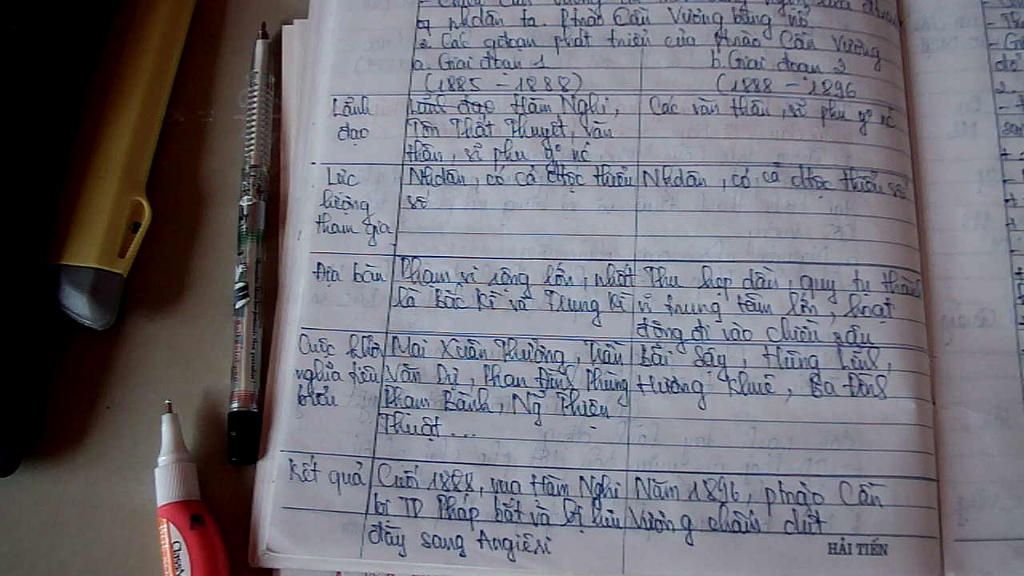 q nhdân ta. Phào Cần Vương bùng nổ
2. Các gđoạn phát triển của phào Cần Vương
a. Giai đoạn 1
b. Giai đoạn 2
(1885 - 1888)
(1888 - 1896
Lãnh đạo
Lãnh đạo Hàm Nghi,
Tôn Thất Thuyết, văn
thân, sĩ phu yº nc
Các văn thân, sĩ phu yº nc
Lực
lượng
tham gia
Nhdân, có cả dtộc thiểu
số
Nhdân, có cả dtộc thiểu số
Địa bàn
Phạm vi rộng lớn, nhất
là Bắc Kì và Trung Kì
Thu hẹp dần, quy tụ thành
trung tâm lớn, hoạt
động đi vào chiều sâu
Cuộc khởi
nghĩa tiêu
biểu
Mai Xuân Thưởng, Trần
Văn Dự, Phan Đình Phùng
Phạm Bành, Ng Thiện
Thuật ...
Bãi Sậy, Hùng Lĩnh,
Hương Khuê, Ba Đình
Kết quả
Cuối 1888, vua Hàm Nghi
bị TD Pháp bắt và bị lưu
đày sang Angiêri
Năm 1896, phào Cần
Vương chấm dứt
HẢI TIẾN